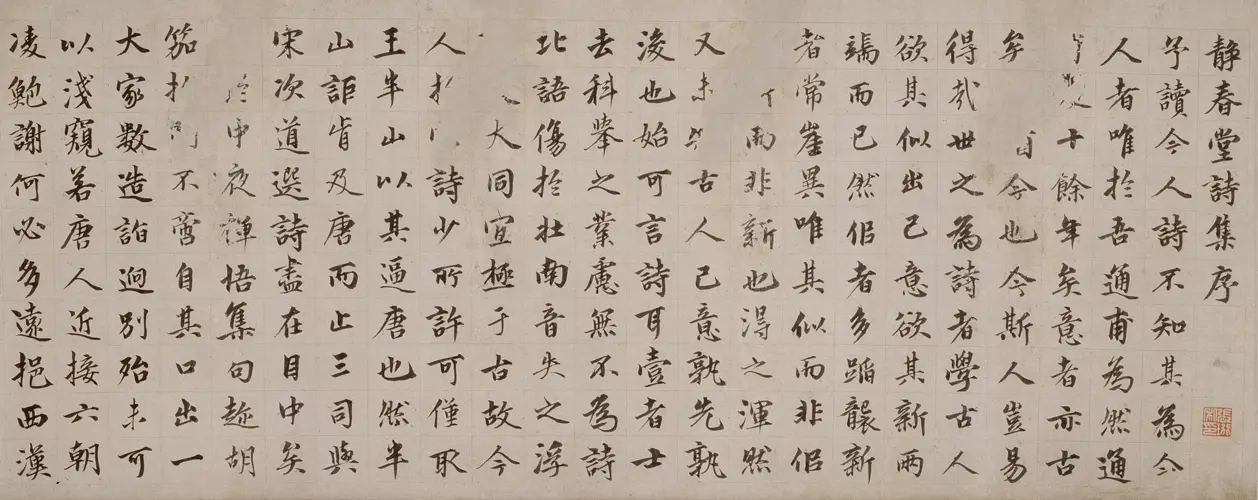 静春堂詩集序
予讀今人詩不知其為今
人者唯扵吾通甫為然通
十餘年矣意者亦古
矣 自今也今斯人豈易
得哉世之為詩者學古人
欲其似出己意欲其新兩
端而已然佀者多蹈襲新
者常崖異唯其似而非佀
而非新也得之渾然
又未 古人己意孰先孰
後也始可言詩耳壹者士
去科舉之業慮無不為詩
北語傷扵壯南音失之浮
大同宜極于古故今
人 詩少所許可僅取
王半山以其逼唐也然半
山詎肯及唐而止三司與
宋次道選詩盡在目中矣
中夜禪悟集句趂胡
笳 不啻自其口出一
大家數造詣迥別殆未可
以淺窺若唐人近接六朝
凌鮑謝何必多遠挹西漢